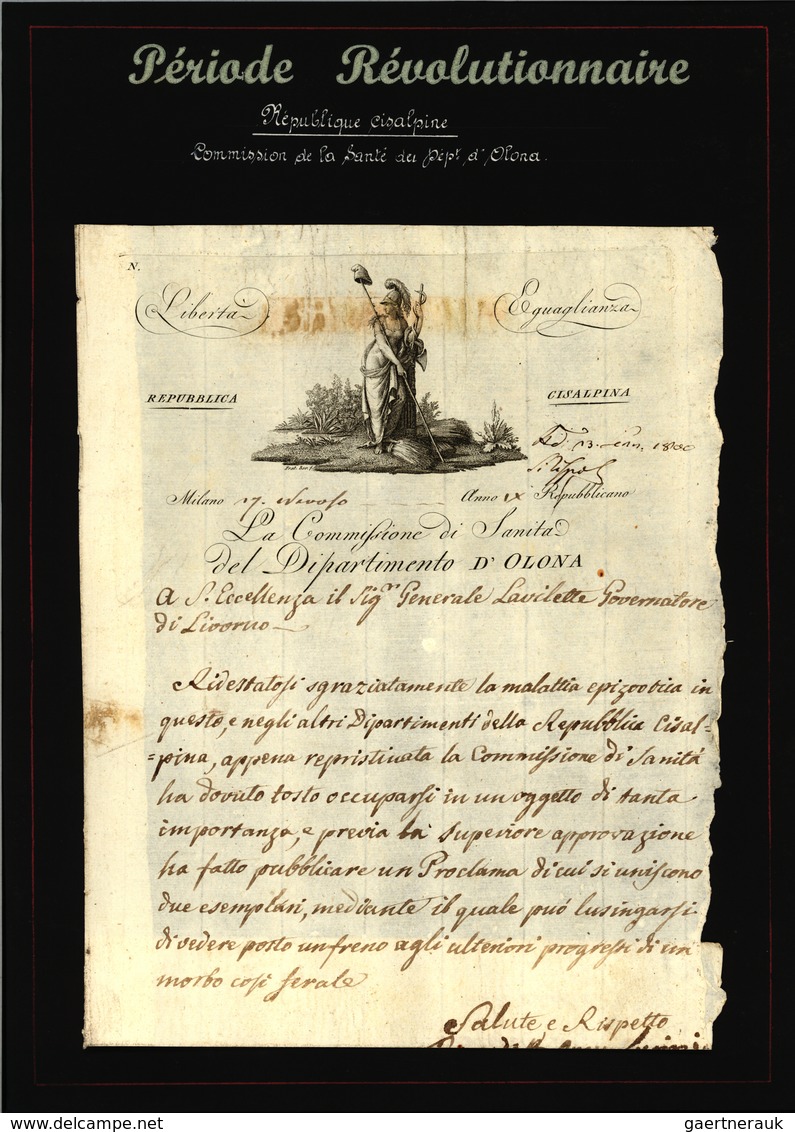 Période Révolutionnaire
République Cisalpine
Commission de la Santé du Dépt d'Olona.
N.
Libertà
Eguaglianza
REPUBBLICA
CISALPINA
1800
Milano 17. Nevoso Anno IX Repubblicano
La Commissione di Sanità
del Dipartimento D'OLONA
A S. Eccellenza il Sigr Generale Lavilette Governatore
di Livorno
Ridestatosi sgraziatamente la malattia epizootica in
questo, e negli altri Dipartimenti della Repubblica Cisal=
=pina, appena repristinata la Commissione di Sanità
ha dovuto tosto occuparsi in un oggetto di tanta
importanza, e previa la superiore approvazione
ha fatto pubblicare un Proclama di cui si uniscono
due esemplari, mediante il quale può lusingarsi
di vedere posto un freno agli ulteriori progressi di un
morbo così ferale
Salute e Rispetto
gaertnerauk